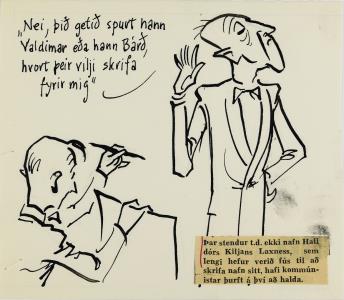 „Nei, þið getið spurt hann
Valdimar eða hann Bárð,
hvort þeir vilji skrifa
fyrir mig“
Þar stendur t.d. ekki nafn Hall
dórs Kiljans Laxness, sem
lengi hefur verið fús til að
skrifa nafn sitt, hafi kommún-
istar þurft á því að halda.